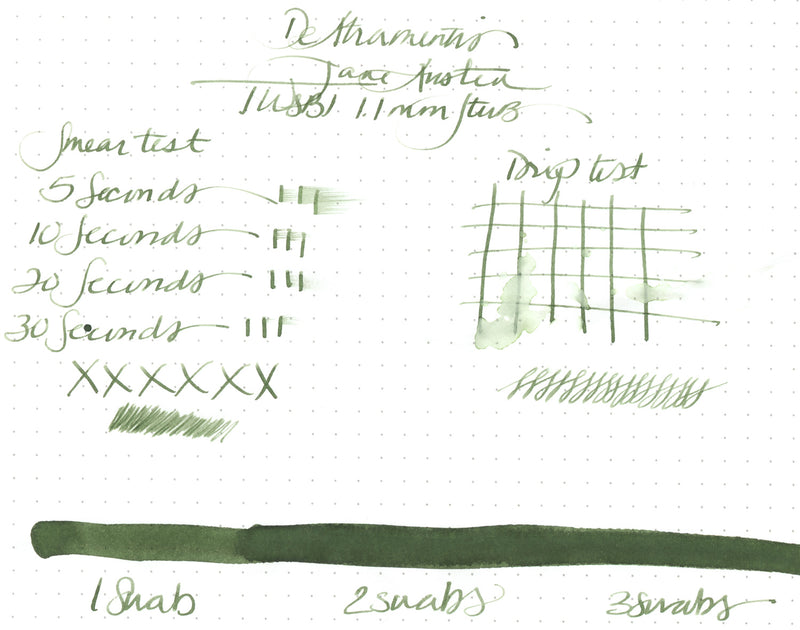 De Atramentis
Jane Austen
TWSBI 1.1mm Stub
Smear test
5 Seconds
10 Seconds
20 Seconds
30 Seconds
XXXXXX
Drip test
1 Swab
2 swabs
3 swabs